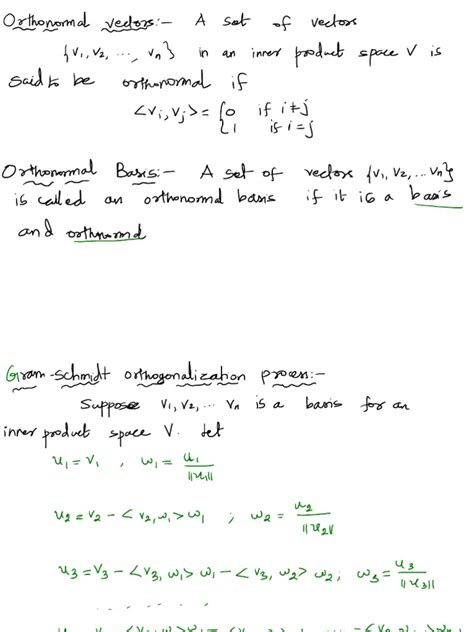 Orthonormal vectors:- A set of vectors
{v₁, v₂, ..., vₙ} in an inner product space V is
said to be orthonormal if
<vᵢ, vⱼ> = {0 if i≠j
1 if i=j
Orthonormal Basis:- A set of vectors {v₁, v₂, ... vₙ}
is called an orthonormal basis if it is a basis
and orthonormal
Gram-schmidt orthogonalization process:-
Suppose v₁, v₂, ... vₙ is a basis for an
inner product space V. Let
u₁ = v₁ , w₁ = u₁/||u₁||
u₂ = v₂ - <v₂, w₁> w₁ ; w₂ = u₂/||u₂||
u₃ = v₃ - <v₃, w₁> w₁ - <v₃, w₂> w₂ ; w₃ = u₃/||u₃||
. . . . . . .